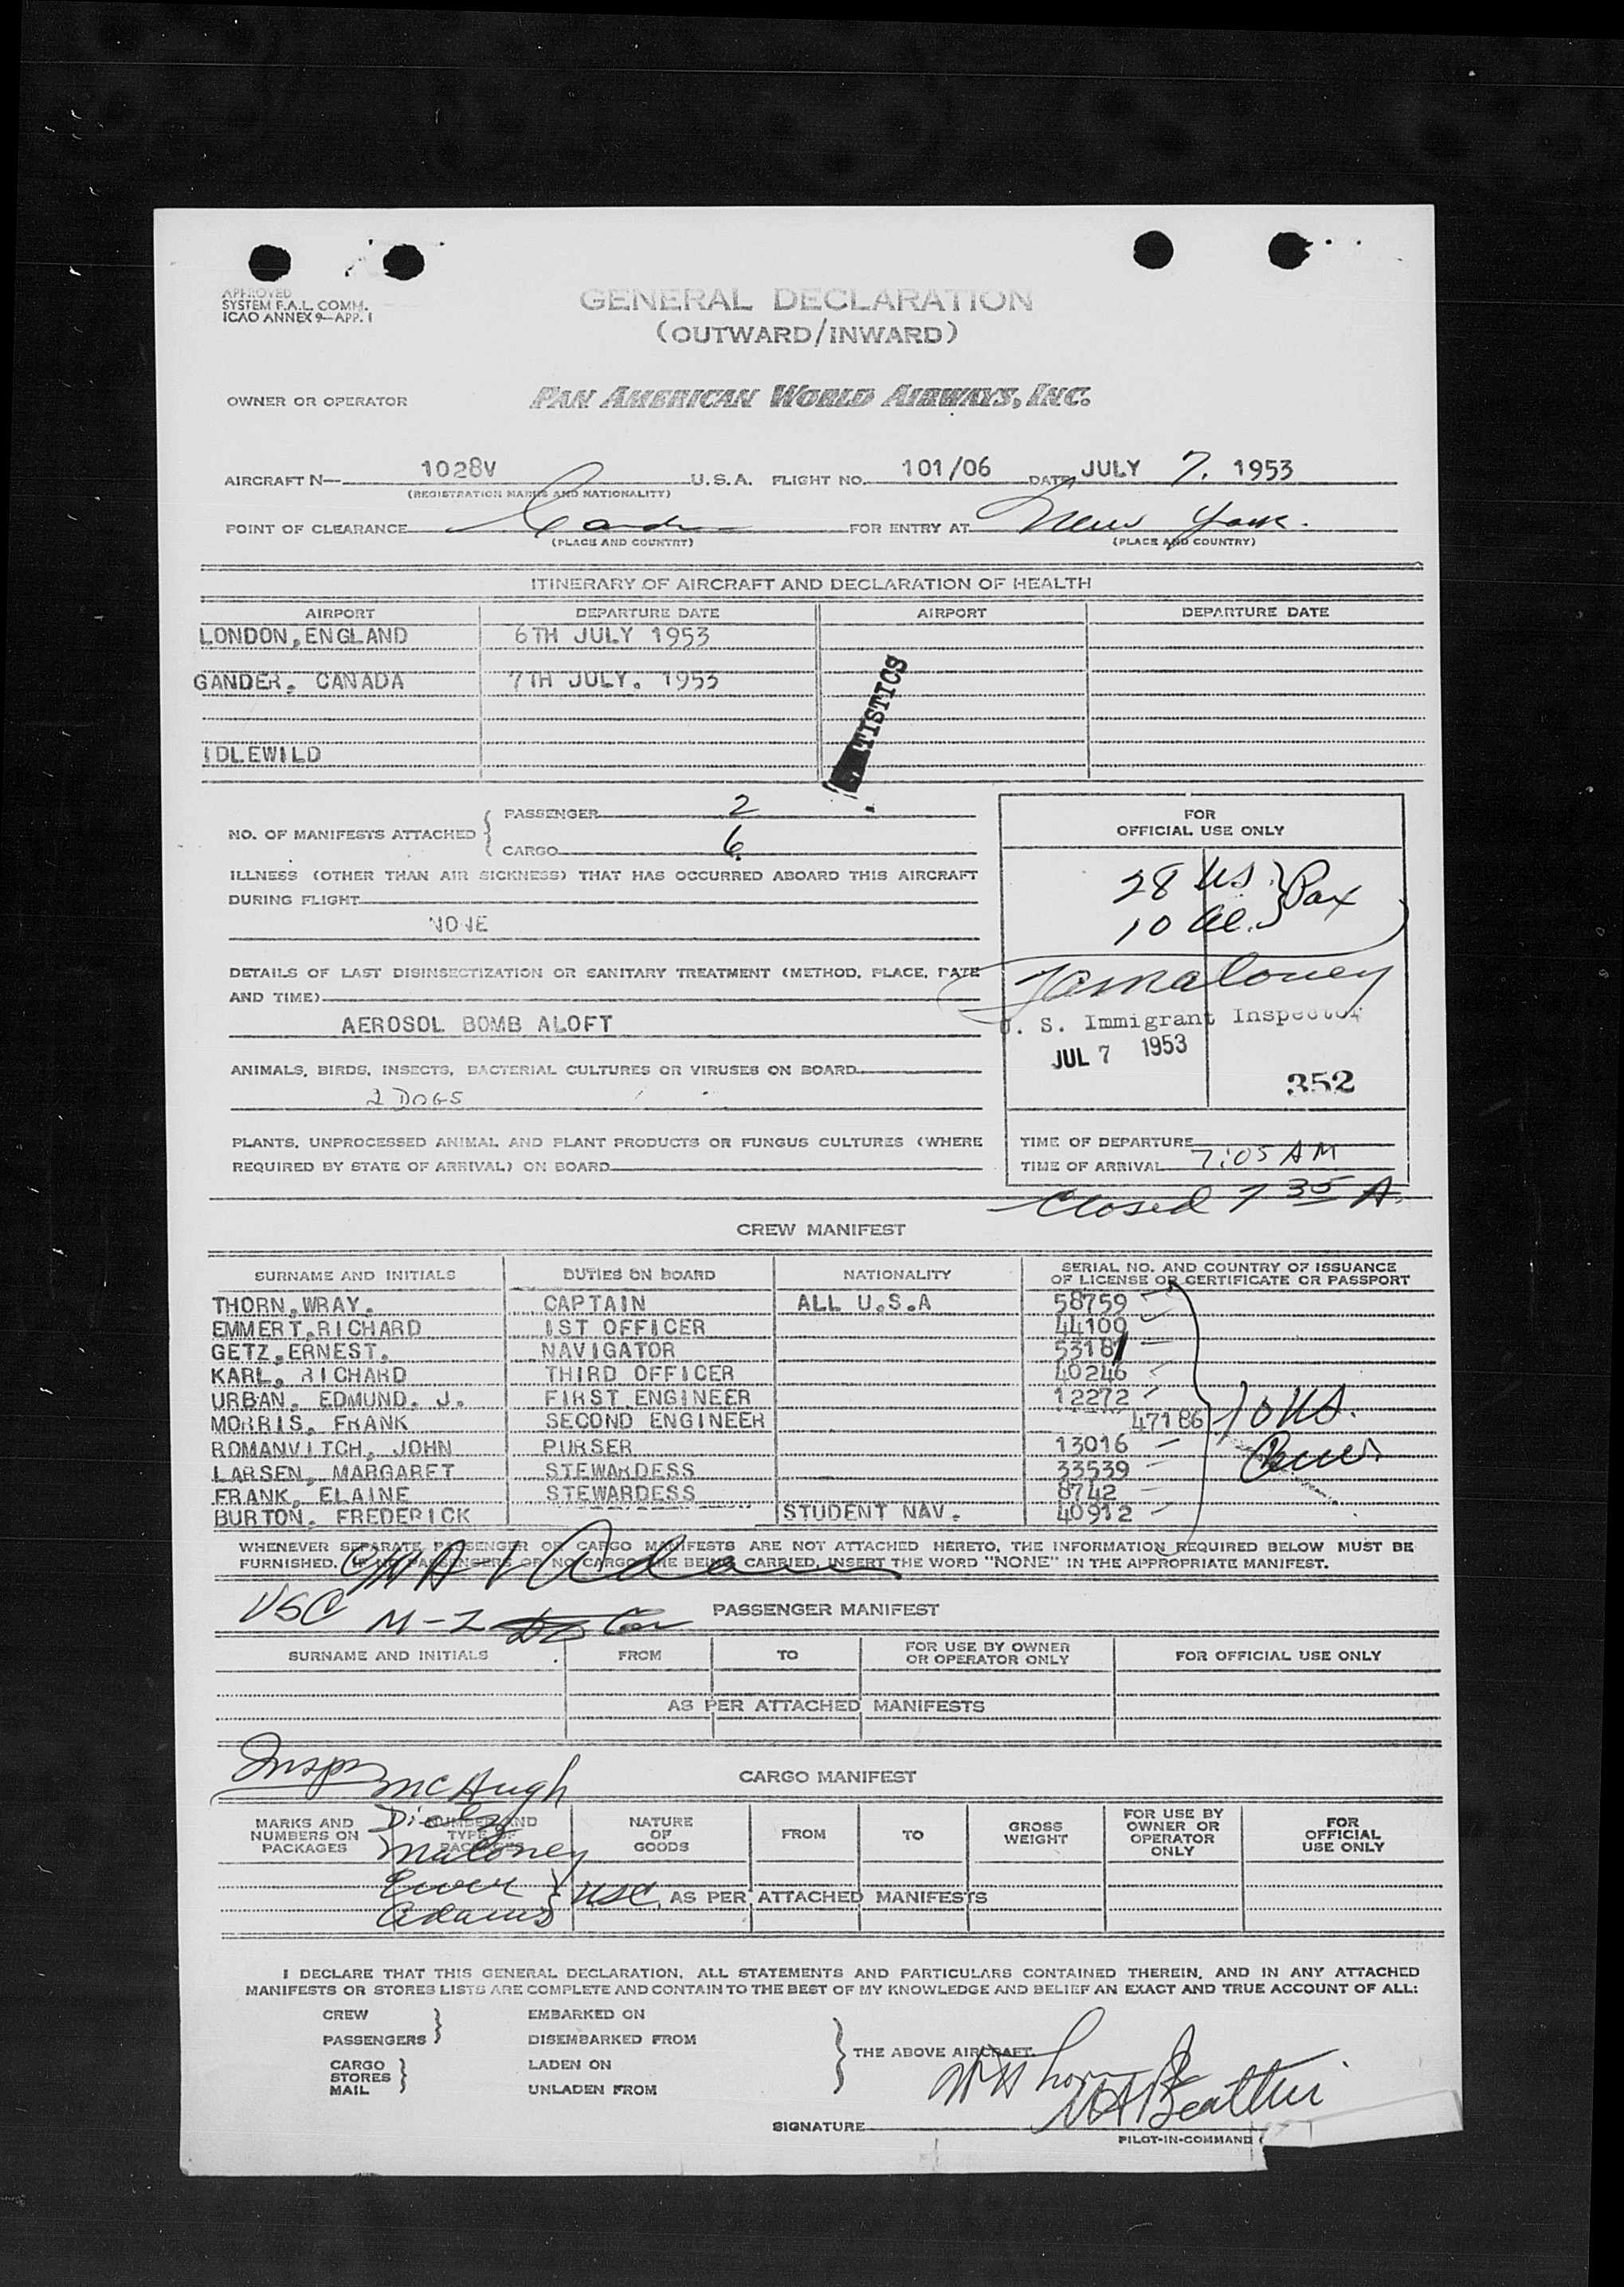 APPROVED
SYSTEM F.A.L. COMM.
ICAO ANNEX 9—APP. I
GENERAL DECLARATION
(OUTWARD/INWARD)
OWNER OR OPERATOR PAN AMERICAN WORLD AIRWAYS, INC.
AIRCRAFT N— 1028V U.S.A. FLIGHT NO. 101/06 DATE JULY 7. 1953
(REGISTRATION MARKS AND NATIONALITY)
POINT OF CLEARANCE FOR ENTRY AT New York.
(PLACE AND COUNTRY) (PLACE AND COUNTRY)
ITINERARY OF AIRCRAFT AND DECLARATION OF HEALTH
AIRPORT DEPARTURE DATE AIRPORT DEPARTURE DATE
LONDON, ENGLAND 6TH JULY 1953
GANDER. CANADA 7TH JULY. 1953
TISTICS
IDLEWILD
NO. OF MANIFESTS ATTACHED { PASSENGER 2
CARGO 6
ILLNESS (OTHER THAN AIR SICKNESS) THAT HAS OCCURRED ABOARD THIS AIRCRAFT
DURING FLIGHT
NONE
DETAILS OF LAST DISINSECTIZATION OR SANITARY TREATMENT (METHOD, PLACE, DATE
AND TIME)
AEROSOL BOMB ALOFT
ANIMALS, BIRDS, INSECTS, BACTERIAL CULTURES OR VIRUSES ON BOARD
2 DOGS
PLANTS, UNPROCESSED ANIMAL AND PLANT PRODUCTS OR FUNGUS CULTURES (WHERE
REQUIRED BY STATE OF ARRIVAL) ON BOARD
FOR
OFFICIAL USE ONLY
28 US. } Pax
10 al.
Maloney
U. S. Immigrant Inspector
JUL 7 1953
352
TIME OF DEPARTURE
TIME OF ARRIVAL 7:05 AM
Closed 7 35 A.
CREW MANIFEST
SURNAME AND INITIALS DUTIES ON BOARD NATIONALITY SERIAL NO. AND COUNTRY OF ISSUANCE
OF LICENSE OR CERTIFICATE OR PASSPORT
THORN, WRAY. CAPTAIN ALL U.S.A 58759
EMMERT, RICHARD 1ST OFFICER 44100
GETZ, ERNEST. NAVIGATOR 53181
KARL, RICHARD THIRD OFFICER 40246
URBAN, EDMUND. J. FIRST ENGINEER 12272
MORRIS, FRANK SECOND ENGINEER 47186
ROMANVITCH, JOHN PURSER 13016
LARSEN, MARGARET STEWARDESS 33539
FRANK, ELAINE STEWARDESS 8742
BURTON, FREDERICK STUDENT NAV. 40912
10 US.
Crew
WHENEVER SEPARATE PASSENGER OR CARGO MANIFESTS ARE NOT ATTACHED HERETO, THE INFORMATION REQUIRED BELOW MUST BE
FURNISHED. IF NO PASSENGERS OR NO CARGO ARE BEING CARRIED, INSERT THE WORD "NONE" IN THE APPROPRIATE MANIFEST.
Adams
USC M-2
PASSENGER MANIFEST
SURNAME AND INITIALS FROM TO FOR USE BY OWNER
OR OPERATOR ONLY FOR OFFICIAL USE ONLY
AS PER ATTACHED MANIFESTS
Insprs McHugh
CARGO MANIFEST
MARKS AND
NUMBERS ON
PACKAGES
NUMBER AND
TYPE OF
PACKAGES
NATURE
OF
GOODS
FROM TO GROSS
WEIGHT
FOR USE BY
OWNER OR
OPERATOR
ONLY
FOR
OFFICIAL
USE ONLY
Maloney
Adams } USC
AS PER ATTACHED MANIFESTS
I DECLARE THAT THIS GENERAL DECLARATION, ALL STATEMENTS AND PARTICULARS CONTAINED THEREIN, AND IN ANY ATTACHED
MANIFESTS OR STORES LISTS ARE COMPLETE AND CONTAIN TO THE BEST OF MY KNOWLEDGE AND BELIEF AN EXACT AND TRUE ACCOUNT OF ALL:
CREW
PASSENGERS } EMBARKED ON
DISEMBARKED FROM
CARGO
STORES
MAIL } LADEN ON
UNLADEN FROM
} THE ABOVE AIRCRAFT.
SIGNATURE
PILOT-IN-COMMAND